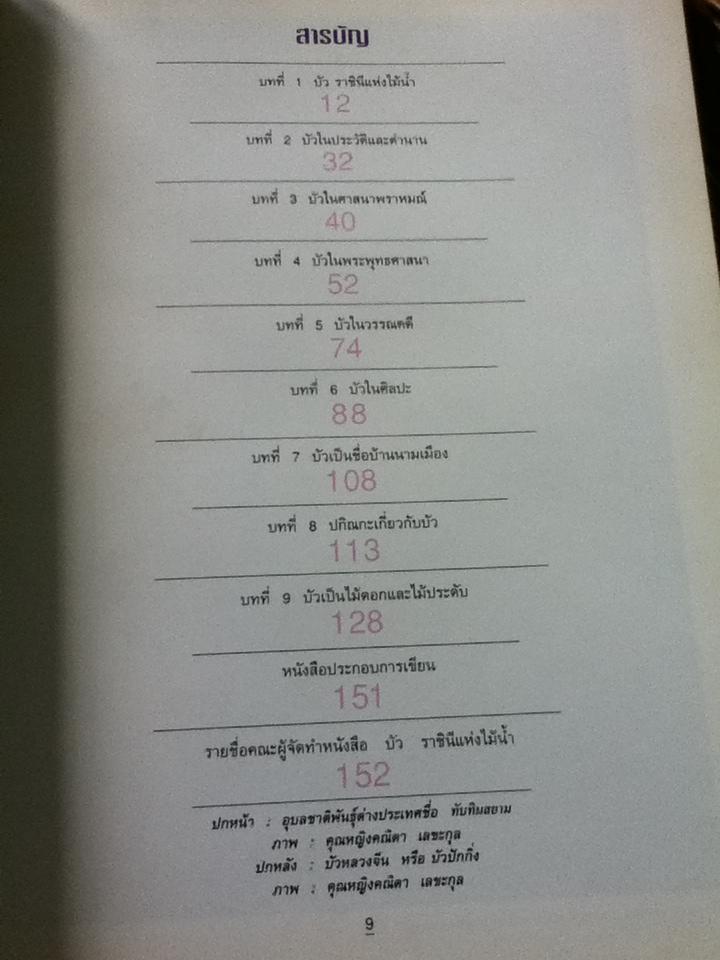 สารบัญ
บทที่ 1 บัว ราชินีแห่งไม้น้ำ
12
บทที่ 2 บัวในประวัติและตำนาน
32
บทที่ 3 บัวในศาสนาพราหมณ์
40
บทที่ 4 บัวในพระพุทธศาสนา
52
บทที่ 5 บัวในวรรณคดี
74
บทที่ 6 บัวในศิลปะ
88
บทที่ 7 บัวเป็นชื่อบ้านนามเมือง
108
บทที่ 8 ปกิณกะเกี่ยวกับบัว
113
บทที่ 9 บัวเป็นไม้ดอกและไม้ประดับ
128
หนังสือประกอบการเขียน
151
รายชื่อคณะผู้จัดทำหนังสือ บัว ราชินีแห่งไม้น้ำ
152
ปกหน้า : อุบลชาติพันธุ์ต่างประเทศชื่อ ทับทิมสยาม
ภาพ : คุณหญิงคณิตา เลขะกุล
ปกหลัง : บัวหลวงจีน หรือ บัวปักกิ่ง
ภาพ : คุณหญิงคณิตา เลขะกุล
9